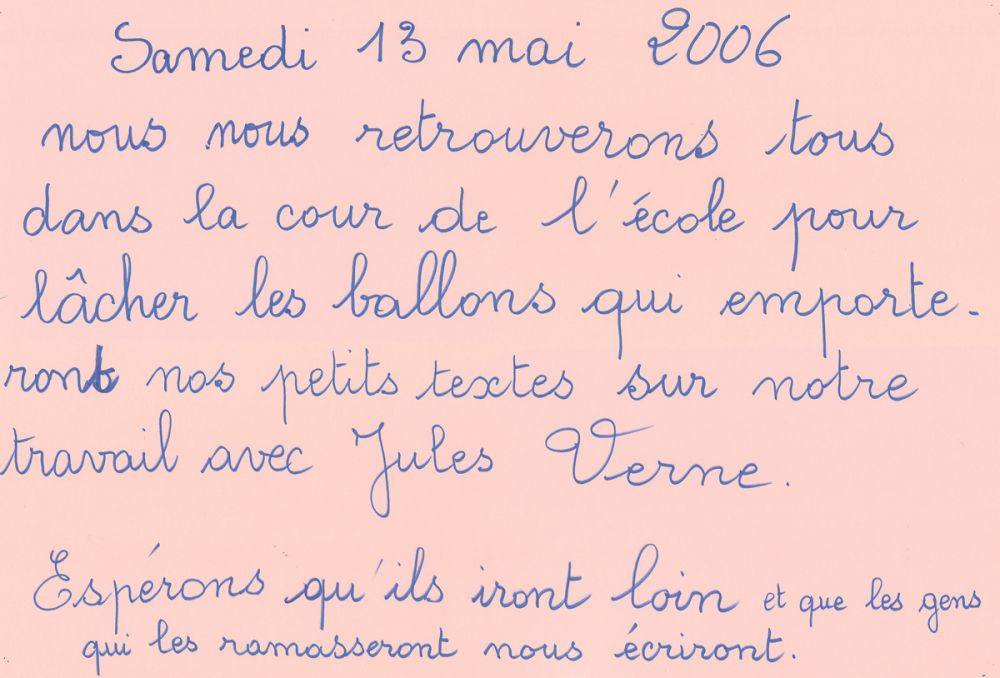 Samedi 13 mai 2006
nous nous retrouverons tous
dans la cour de l'école pour
lâcher les ballons qui emporte-
ront nos petits textes sur notre
travail avec Jules Verne.
Espérons qu'ils iront loin et que les gens
qui les ramasseront nous écriront.